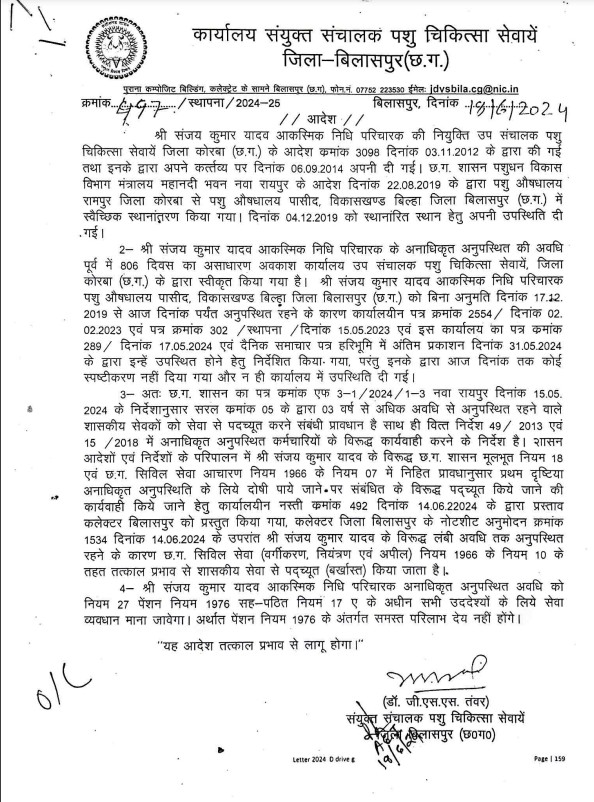 कार्यालय संयुक्त संचालक पशु चिकित्सा सेवायें
जिला–बिलासपुर(छ.ग.)
पुराना कम्पोजिट बिल्डिंग, कलेक्ट्रेट के सामने बिलासपुर (छ.ग), फोन.नं. 07752 223530 ईमेलः jdvsbila.cg@nic.in
क्रमांक 497/स्थापना/2024–25 बिलासपुर, दिनांक 18/6/2024
// आदेश //
श्री संजय कुमार यादव आकस्मिक निधि परिचारक की नियुक्ति उप संचालक पशु
चिकित्सा सेवायें जिला कोरबा (छ.ग.) के आदेश क्रमांक 3098 दिनांक 03.11.2012 के द्वारा की गई
तथा इनके द्वारा अपने कर्त्तव्य पर दिनांक 06.09.2014 अपनी दी गई। छ.ग. शासन पशुधन विकास
विभाग मंत्रालय महानदी भवन नवा रायपुर के आदेश दिनांक 22.08.2019 के द्वारा पशु औषधालय
रामपुर जिला कोरबा से पशु औषधालय पासीद, विकासखण्ड बिल्हा जिला बिलासपुर (छ.ग.) में
स्वैच्छिक स्थानांतरण किया गया। दिनांक 04.12.2019 को स्थानांरित स्थान हेतु अपनी उपस्थिति दी
गई।
2– श्री संजय कुमार यादव आकस्मिक निधि परिचारक के अनाधिकृत अनुपस्थित की अवधि
पूर्व में 806 दिवस का असाधारण अवकाश कार्यालय उप संचालक पशु चिकित्सा सेवायें, जिला
कोरबा (छ.ग.) के द्वारा स्वीकृत किया गया है। श्री संजय कुमार यादव आकस्मिक निधि परिचारक
पशु औषधालय पासीद, विकासखण्ड बिल्हा जिला बिलासपुर (छ.ग.) को बिना अनुमति दिनांक 17.12.
2019 से आज दिनांक पर्यंत अनुपस्थित रहने के कारण कार्यालयीन पत्र क्रमांक 2554/ दिनांक 02.
02.2023 एवं पत्र क्रमांक 302 /स्थापना /दिनांक 15.05.2023 एवं इस कार्यालय का पत्र क्रमांक
289/ दिनांक 17.05.2024 एवं दैनिक समाचार पत्र हरिभूमि में अंतिम प्रकाशन दिनांक 31.05.2024
के द्वारा इन्हें उपस्थित होने हेतु निर्देशित किया गया, परंतु इनके द्वारा आज दिनांक तक कोई
स्पष्टीकरण नहीं दिया गया और न ही कार्यालय में उपस्थिति दी गई।
3– अतः छ.ग. शासन का पत्र क्रमांक एफ 3–1/2024/1–3 नवा रायपुर दिनांक 15.05.
2024 के निर्देशानुसार सरल क्रमांक 05 के द्वारा 03 वर्ष से अधिक अवधि से अनुपस्थित रहने वाले
शासकीय सेवकों को सेवा से पदच्यूत करने संबंधी प्रावधान है साथ ही वित्त निर्देश 49/ 2013 एवं
15 /2018 में अनाधिकृत अनुपस्थित कर्मचारियों के विरूद्ध कार्यवाही करने के निर्देश है। शासन
आदेशों एवं निर्देशों के परिपालन में श्री संजय कुमार यादव के विरूद्ध छ.ग. शासन मूलभूत नियम 18
एवं छ.ग. सिविल सेवा आचारण नियम 1966 के नियम 07 में निहित प्रावधानुसार प्रथम दृष्टिया
अनाधिकृत अनुपस्थिति के लिये दोषी पाये जाने पर संबंधित के विरूद्ध पद्च्यूत किये जाने की
कार्यवाही किये जाने हेतु कार्यालयीन नस्ती क्रमांक 492 दिनांक 14.06.22024 के द्वारा प्रस्ताव
कलेक्टर बिलासपुर को प्रस्तुत किया गया, कलेक्टर जिला बिलासपुर के नोटशीट अनुमोदन क्रमांक
1534 दिनांक 14.06.2024 के उपरांत श्री संजय कुमार यादव के विरूद्ध लंबी अवधि तक अनुपस्थित
रहने के कारण छ.ग. सिविल सेवा (वर्गीकरण, नियंत्रण एवं अपील) नियम 1966 के नियम 10 के
तहत तत्काल प्रभाव से शासकीय सेवा से पद्च्यूत (बर्खास्त) किया जाता है।
4– श्री संजय कुमार यादव आकस्मिक निधि परिचारक अनाधिकृत अनुपस्थित अवधि को
नियम 27 पेंशन नियम 1976 सह–पठित नियम 17 ए के अधीन सभी उददेश्यों के लिये सेवा
व्यवधान माना जावेगा। अर्थात पेंशन नियम 1976 के अंतर्गत समस्त परिलाभ देय नहीं होंगे।
"यह आदेश तत्काल प्रभाव से लागू होगा।"
O/C
(डॉ. जी.एस.एस. तंवर)
संयुक्त संचालक पशु चिकित्सा सेवायें
जिला बिलासपुर (छ०ग०)
18/6/24
Letter 2024 D drive g Page | 159